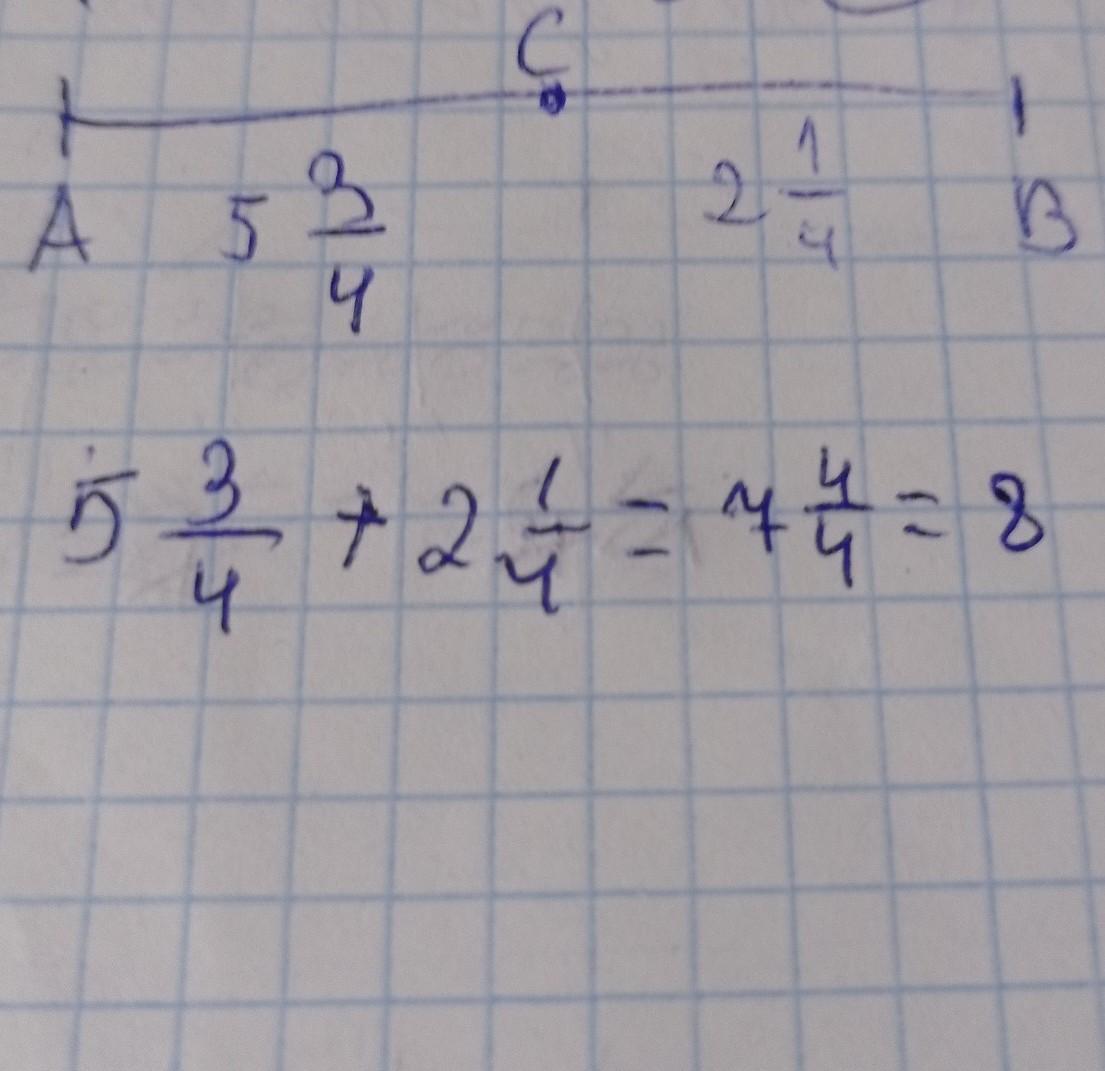 C
A 5 3/4 2 1/4 B
5 3/4 + 2 1/4 = 7 4/4 = 8